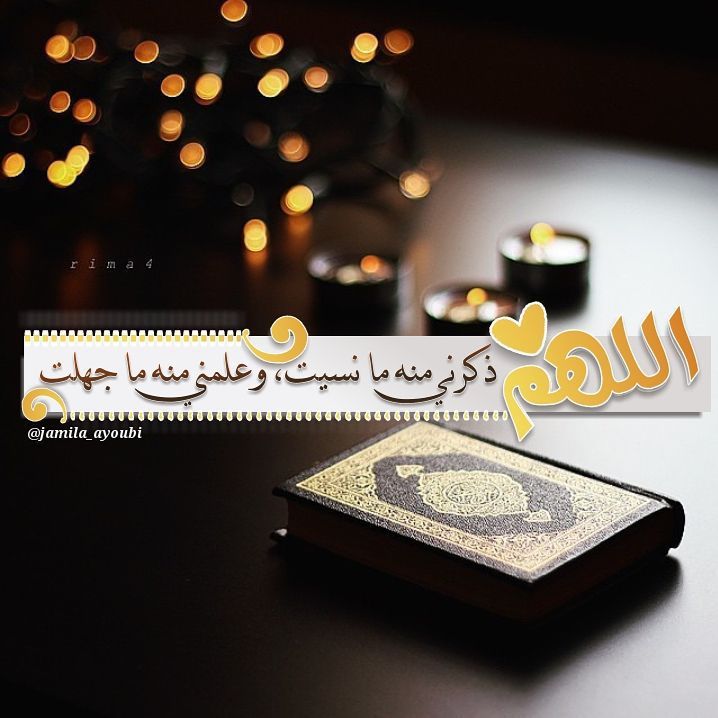 r i m a 4
اللهم ذكرني منه ما نسيت، وعلمني منه ما جهلت
@jamila_ayoubi